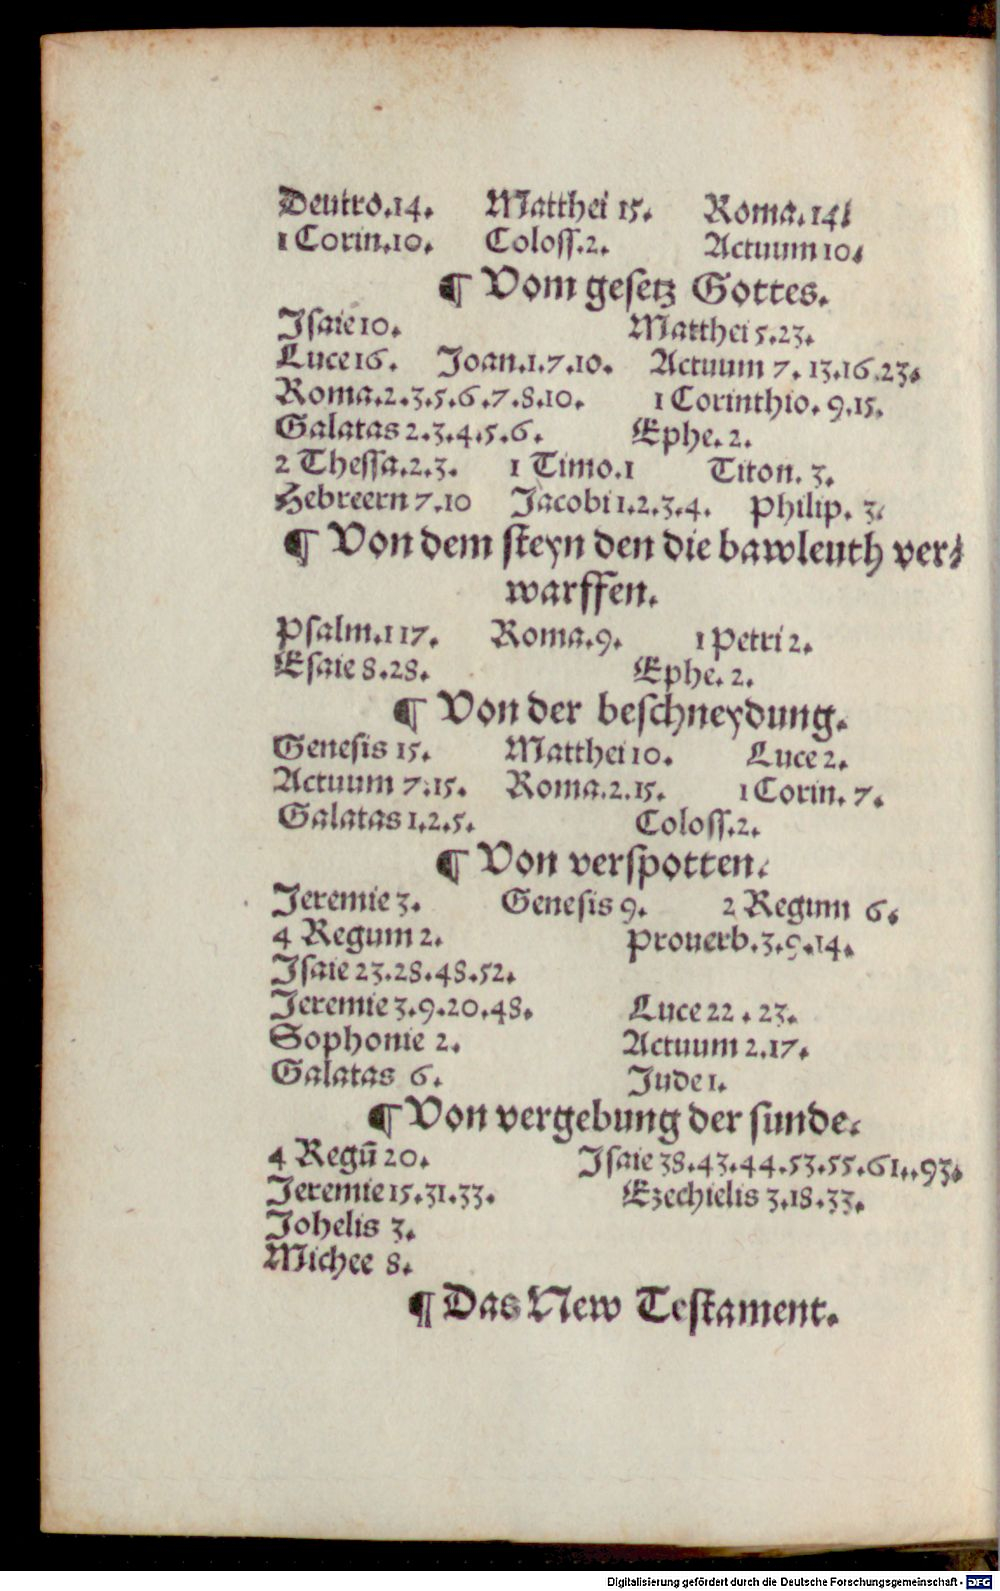 Deutro.14. Matthei 15. Roma.14.
1 Corin.10. Coloſſ.2. Actuum 10.
¶ Vom geſetz Gottes.
Iſaie 10. Matthei 5.23.
Luce 16. Joan.1.7.10. Actuum 7.13.16.23.
Roma.2.3.5.6.7.8.10. 1 Corinthio. 9.15.
Galatas 2.3.4.5.6. Ephe. 2.
2 Theſſa.2.3. 1 Timo.1 Titon. 3.
Hebreern 7.10 Jacobi 1.2.3.4. Philip. 3.
¶ Von dem ſteyn den die bawleuth ver⸗
warffen.
Pſalm.117. Roma.9. 1 Petri 2.
Eſaie 8.28. Ephe. 2.
¶ Von der beſchneydung.
Geneſis 15. Matthei 10. Luce 2.
Actuum 7.15. Roma.2.15. 1 Corin. 7.
Galatas 1.2.5. Coloſſ.2.
¶ Von verſpotten.
Jeremie 3. Geneſis 9. 2 Regum 6.
4 Regum 2. Prouerb.3.9.14.
Iſaie 23.28.48.52.
Jeremie 3.9.20.48. Luce 22.23.
Sophonie 2. Actuum 2.17.
Galatas 6. Jude 1.
¶ Von vergebung der ſunde.
4 Regū 20. Iſaie 38.43.44.53.55.61..93.
Jeremie 15.31.33. Ezechielis 3.18.33.
Johelis 3.
Michee 8.
¶ Das New Teſtament.
Digitalisierung gefördert durch die Deutsche Forschungsgemeinschaft - DFG